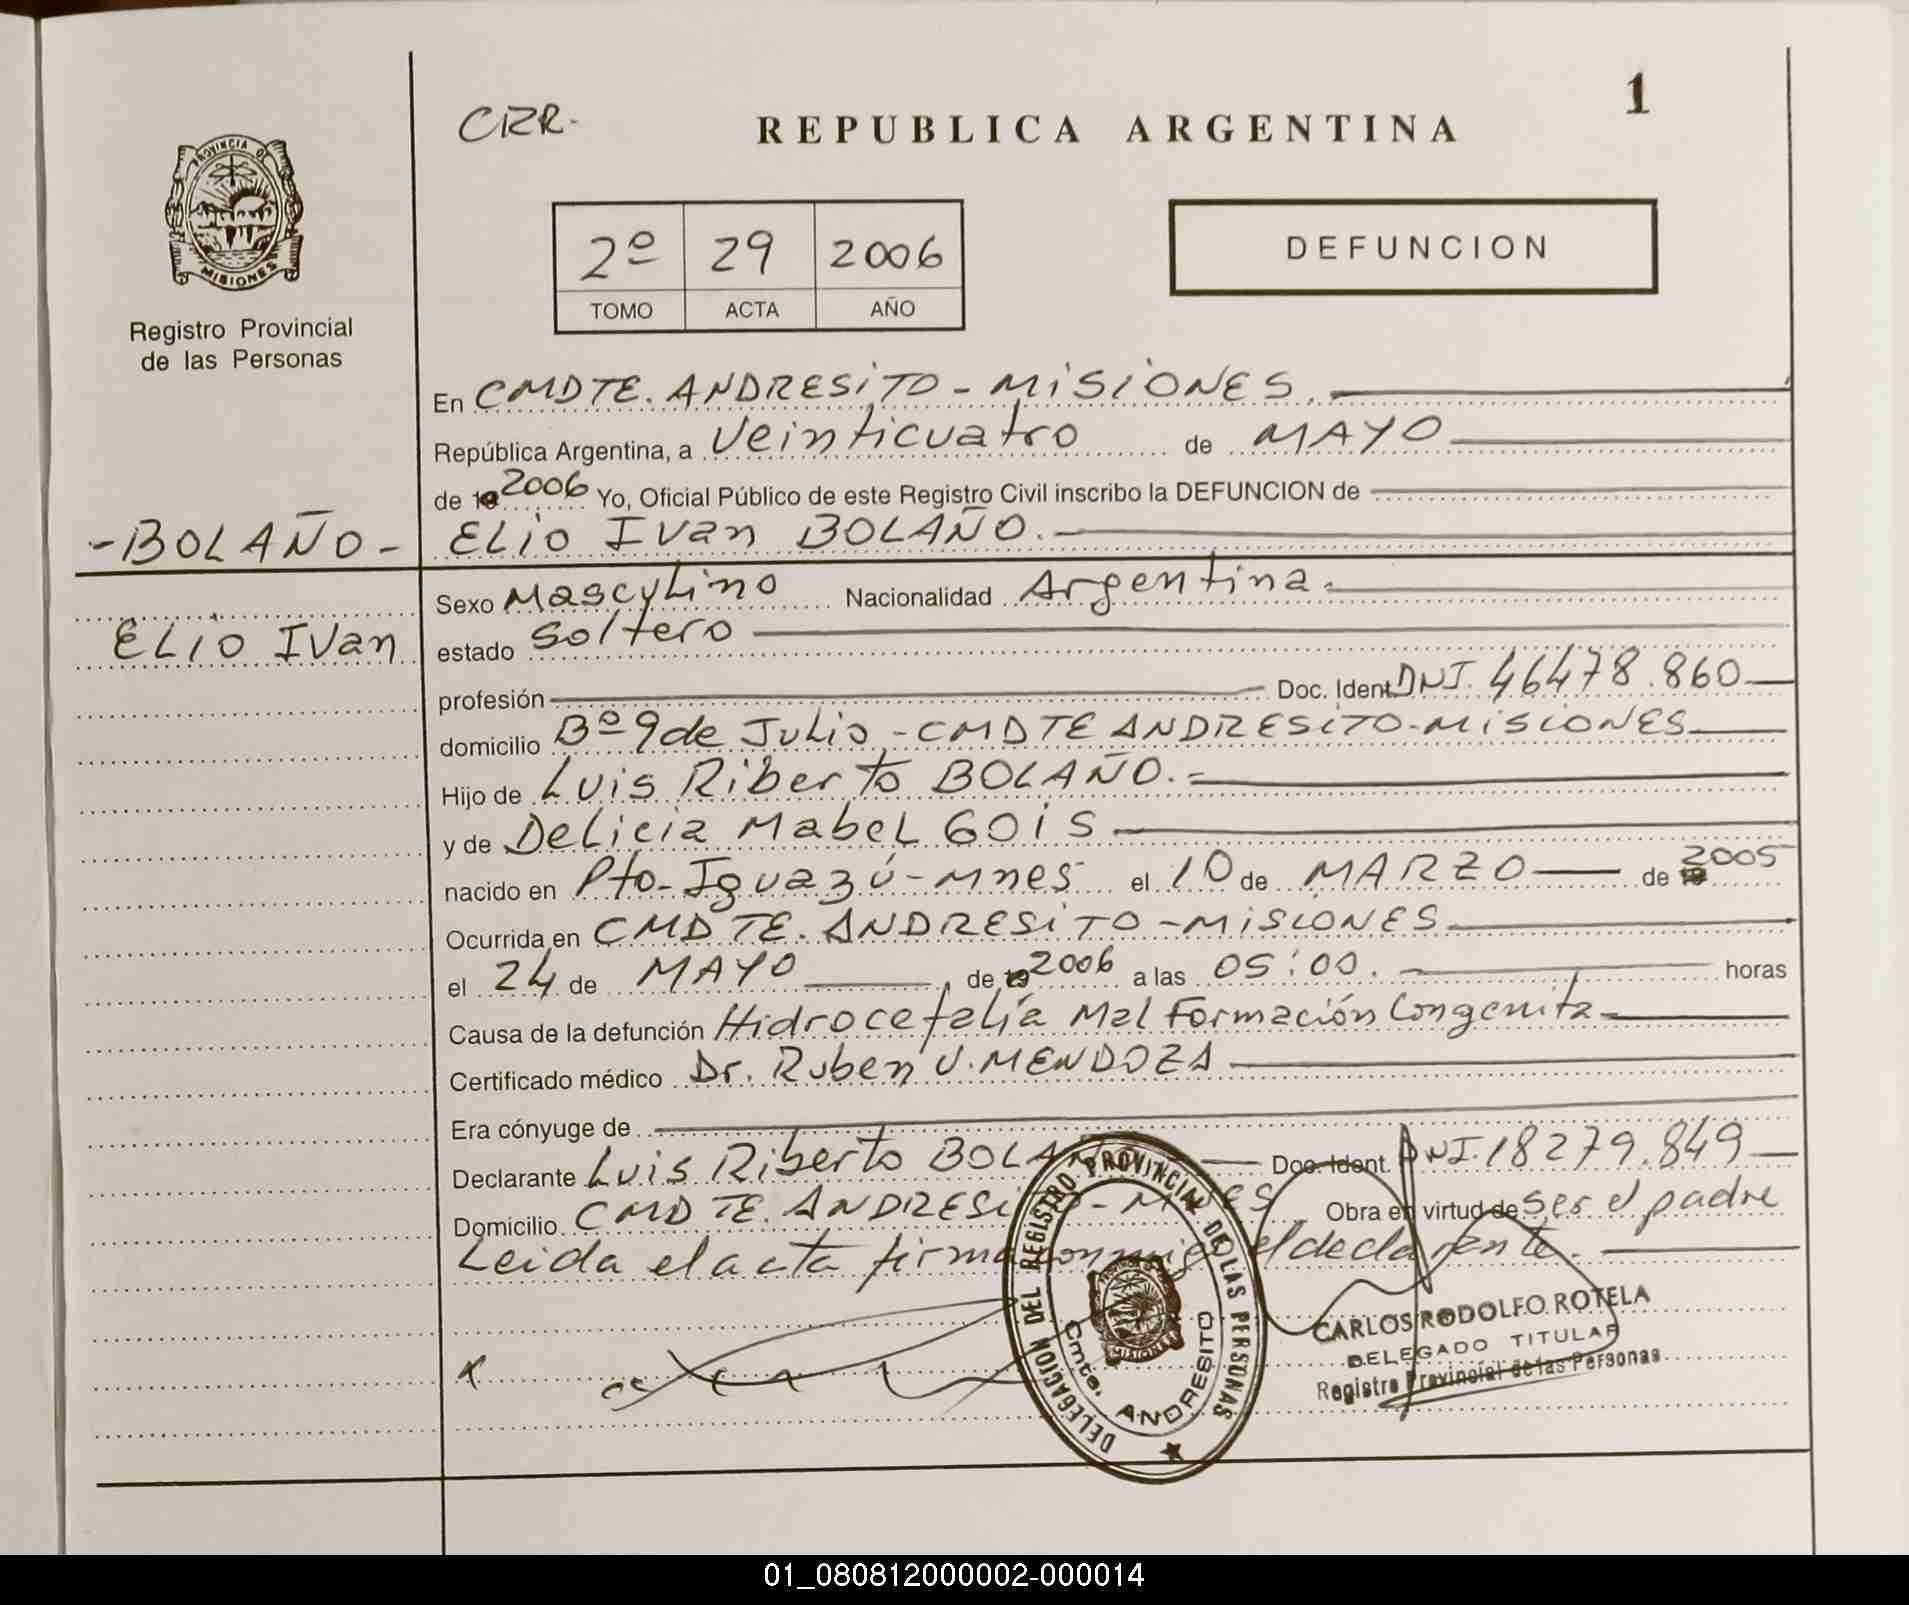 1
CRR-
REPUBLICA ARGENTINA
PROVINCIA DE
MISIONES
Registro Provincial
de las Personas
2º 29 2006
TOMO ACTA AÑO
DEFUNCION
En CMDTE. ANDRESiTO - MiSiONES.
República Argentina, a Veinticuatro de MAYO
de 19 2006 Yo, Oficial Público de este Registro Civil inscribo la DEFUNCION de
-BOLAÑO- ELiO IVan BOLAÑO.
Sexo Masculino Nacionalidad Argentina.
ELiO IVan
estado Soltero
profesión Doc. Ident. DNI. 46478.860
domicilio Bº 9 de JuLio - CMDTE ANDRESiTO-MiSiONES
Hijo de Luis Riberto BOLAÑO.-
y de DeLicia MabeL GOiS
nacido en Pto-Iguazú-Mnes el 10 de MARZO de 19 2005
Ocurrida en CMDTE. ANDRESiTO - MiSiONES
el 24 de MAYO de 19 2006 a las 05:00. horas
Causa de la defunción Hidrocefalía Mal Formación Congenita
Certificado médico Dr. Ruben U. MENDOZA
Era cónyuge de
Declarante Luis Riberto BOLA Doc. Ident. DNI. 18279.849
Domicilio CMDTE. ANDRESi - M ES Obra en virtud de ser el padre
Leida el acta firma conmigo el declarante.
DELEGACION DEL REGISTRO PROVINCIAL DE LAS PERSONAS
Cmte. ANDRESITO
MISIONES
CARLOS RODOLFO ROTELA
DELEGADO TITULAR
Registro Provincial de las Personas
01_080812000002-000014